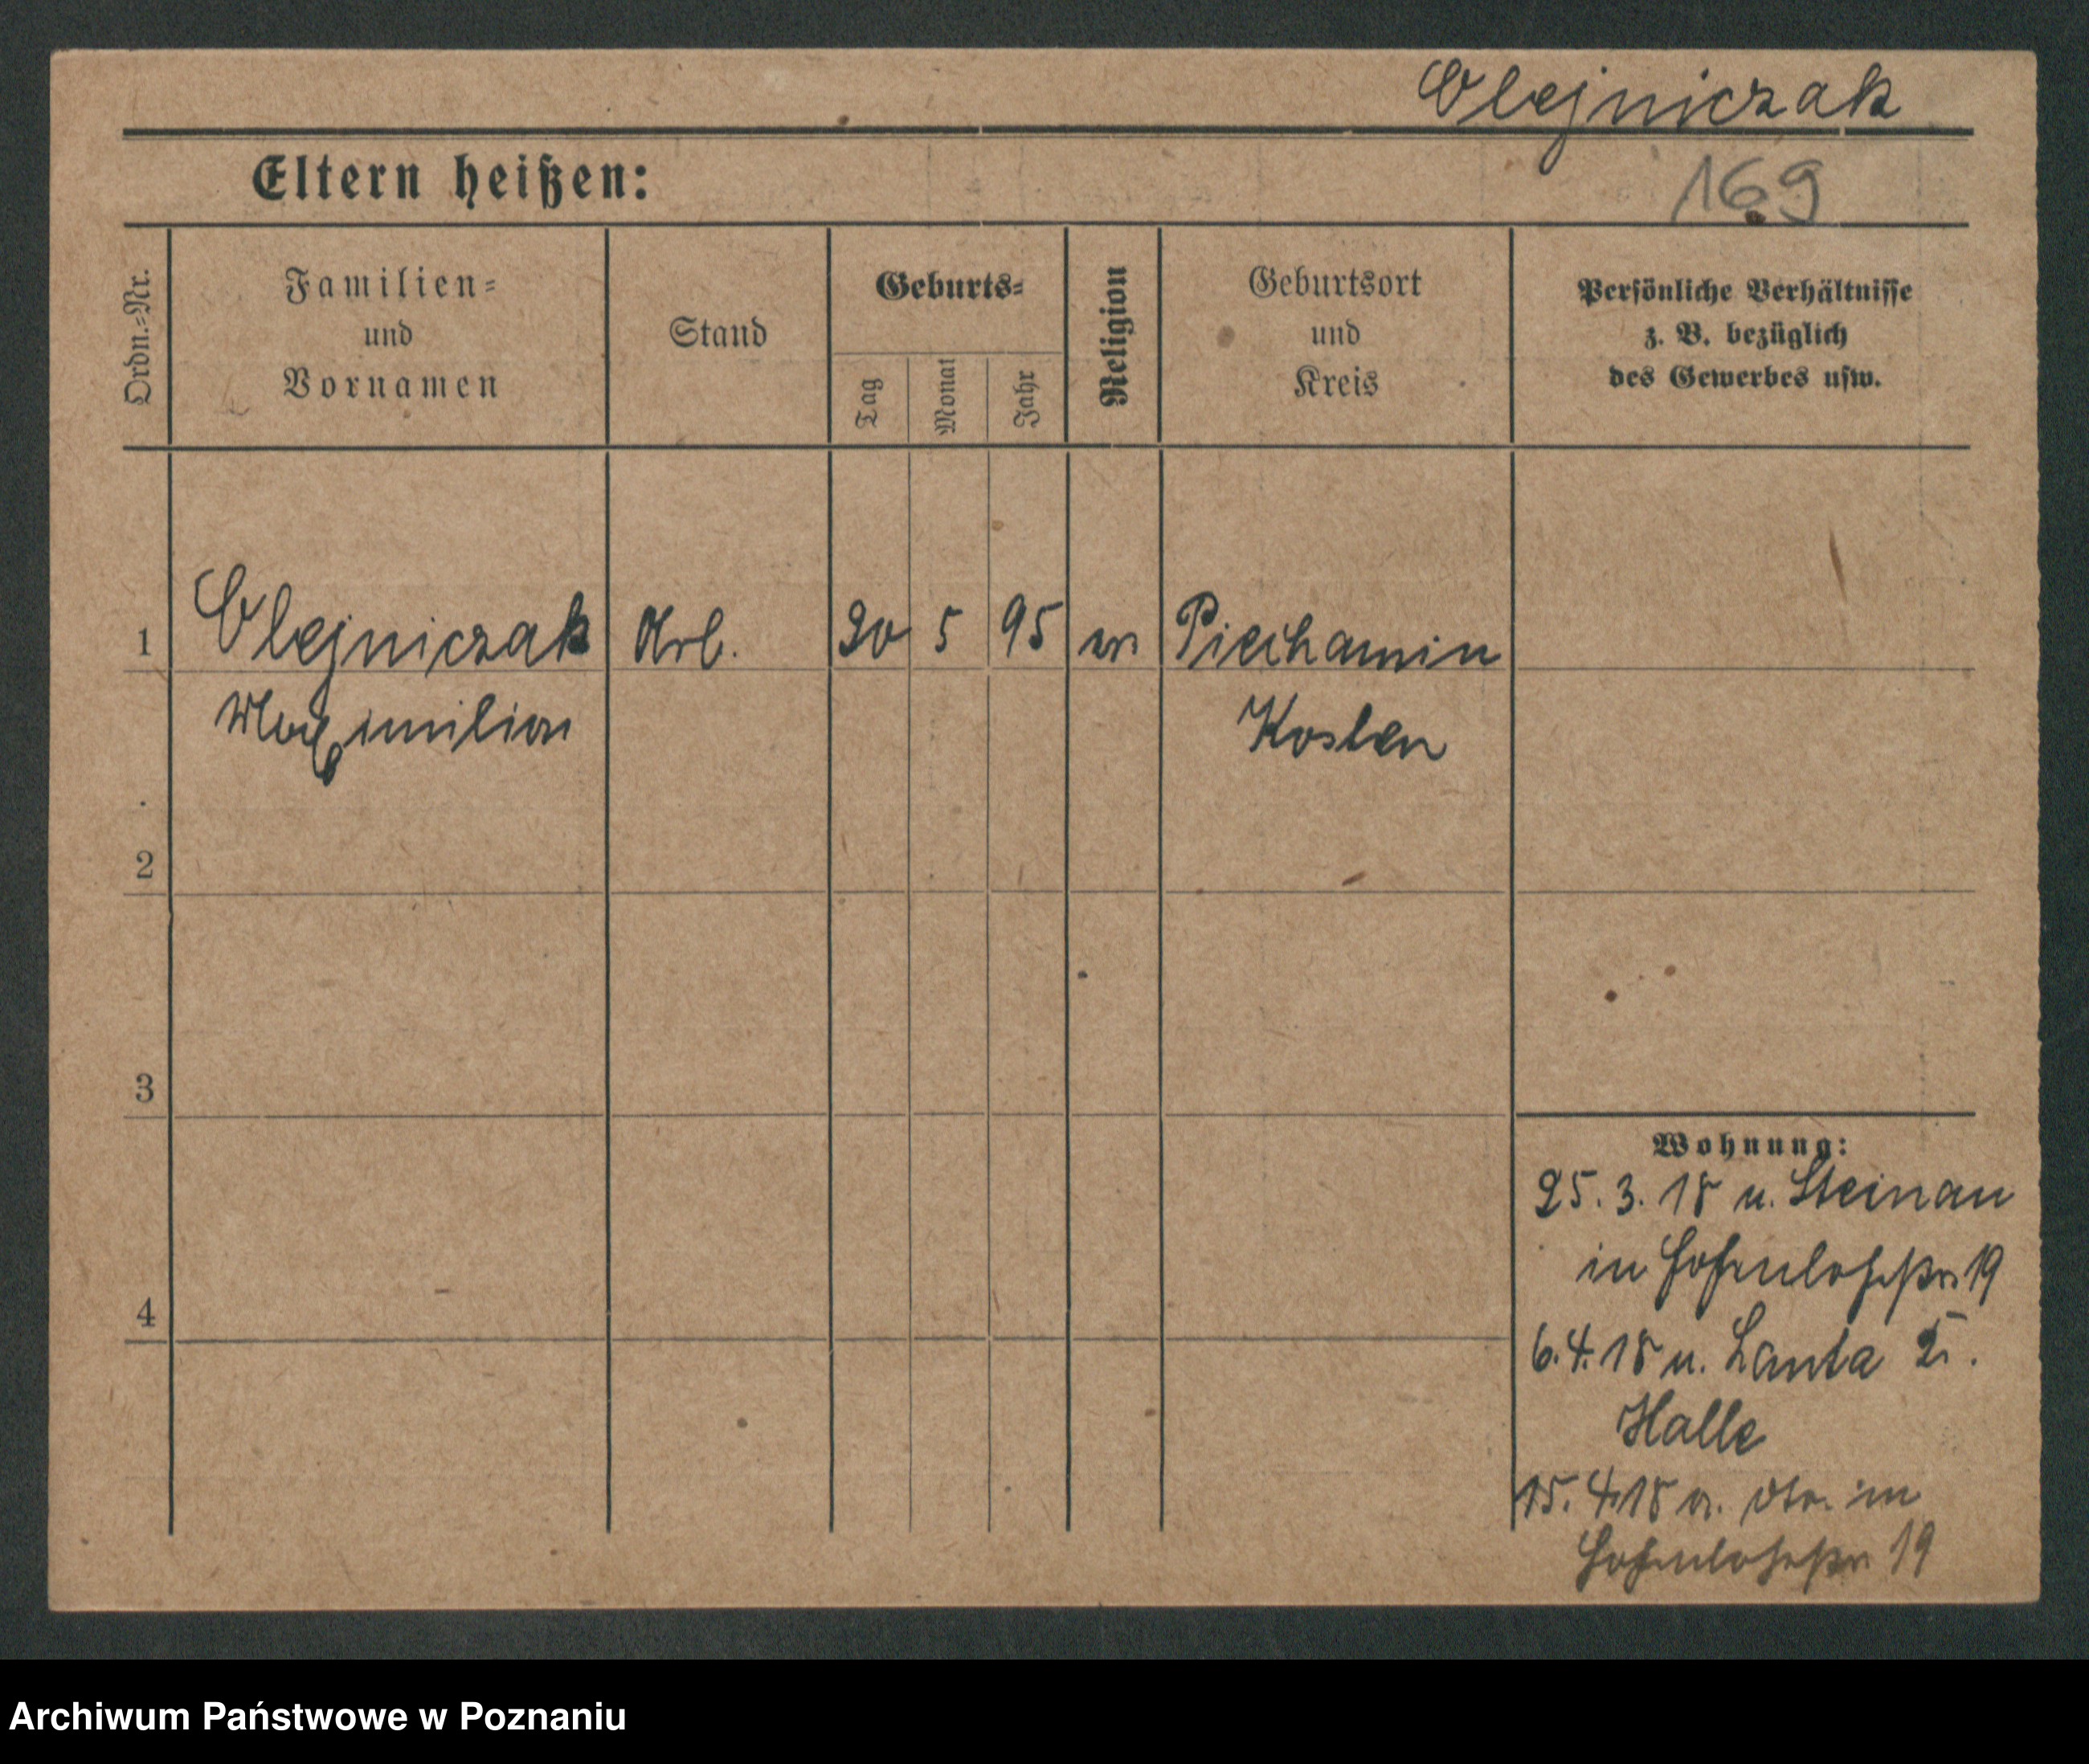 Olejniczak
Eltern heißen:
169
Ordn.=Nr.
Familien=
und
Vornamen
Stand
Geburts=
Tag
Monat
Jahr
Religion
Geburtsort
und
Kreis
Persönliche Verhältnisse
z. B. bezüglich
des Gewerbes usw.
1
Olejniczak
Arb.
5
95
Maximilian
Kosten
2
3
4
Wohnung:
25. 3. 18 n. Steinau
in Hohenlohestr. 19
6. 4. 18 n.
Halle
15. 4 18 v. im
Hohenlohestr 19
Archiwum Państwowe w Poznaniu